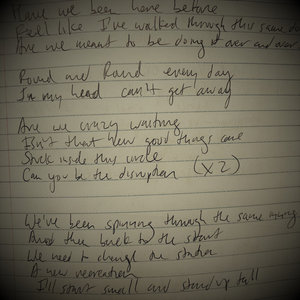 Have we been here before
Feel like I've walked through this same
Are we meant to be doing it over and over
Round and Round every day
In my head can't get away
Are we crazy waiting
Isn't that how good things come
Stuck inside this circle
Can you be the disruption (x2)
We've been spinning through the same
And then back to the start
We need to change our
A new
I'll start small and stand up tall